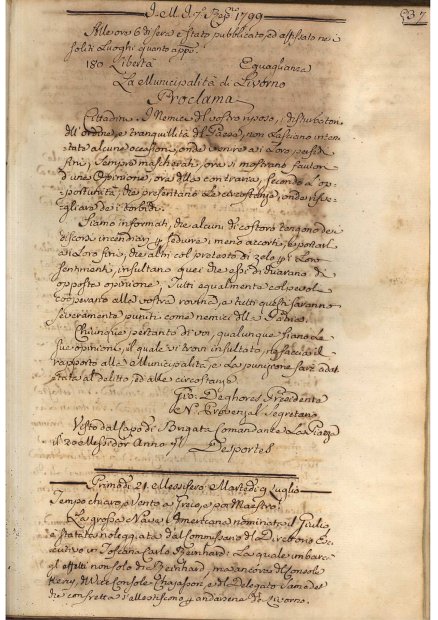 537
1799
Alle ore 6 di sera è stato pubblicato, ed affissato nei
soliti Luoghi quanto appo.
180 Libertà Eguaglianza
La Municipalità di Livorno
Proclama
Cittadini. I Nemici del vostro riposo, i disturbatori
dell'ordine, e tranquillità del Paese, non lasciano inten-
tata alcuna occasione, onde venire ai Loro perfidi
fini, sempre mascherati, ora si mostrano fautori
d'una Opinione, ora della contraria, secondo l'op-
portunità, che presentano le circostanze, onde risve-
gliare dei torbidi.
Siamo informati, che alcuni di costoro tengono dei
discorsi incendiari p sedurre i meno accorti, e portarli
ai Loro fini, che altri col pretesto di zelo pi Loro
sentimenti, insultano quei che essi dichiarano di
opposta opinione; Tutti egualmente colpevoli
cooperanto alla vostra rovina, e tutti questi saranno
severamente puniti come nemici della Patria.
Chiunque pertanto di voi, qualunque siano Le
sue opinioni, il quale si trovi insultato, ne faccia il
rapporto alla Municipalità, e La punizione sarà adat-
tata al delitto, ed alle circostanze
Gio. Deghores Presidente
N. Provenzal Segretario
Visto dal Capo di Brigata Comandante La Piazza
il 20 Messidor Anno 7
Desportes
Primodi 21 Messifero Martedì 9 Luglio
Tempo chiaro, e Vento a
La grossa Nave Americana nominata il Giulio
è stata noleggiata dal Commissario del Direttorio Ese-
cutivo in Toscana Carlo Reinhard: La quale imbar-
gli effetti non solo di Reinhard, ma ancora del Console
del Vice Console Chajasson, e del Delegato
che con fretta si allestiscono p andarsene da Livorno.